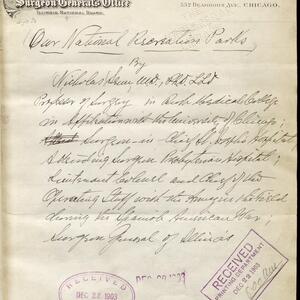 Surgeon General's Office
Illinois National Guard.
532 Dearborn Ave., Chicago.
Our National Recreation Parks
By
Nicholas Senn, M.D., Ph.D. LL.D
Professor of Surgery in Rush Medical College
in Affiliation with the University of Chicago;
Surgeon-in-Chief St. Joseph's Hospital
Attending Surgeon Presbyterian Hospital;
Lieutenant Colonel and Chief of the
Operating Staff with the Army in the Field
during the Spanish American War;
Surgeon General of Illinois
RECEIVED
DEC 22 1903
DEC 29 1903
RECEIVED
DEC 22 1903
PRINTING DEPARTMENT